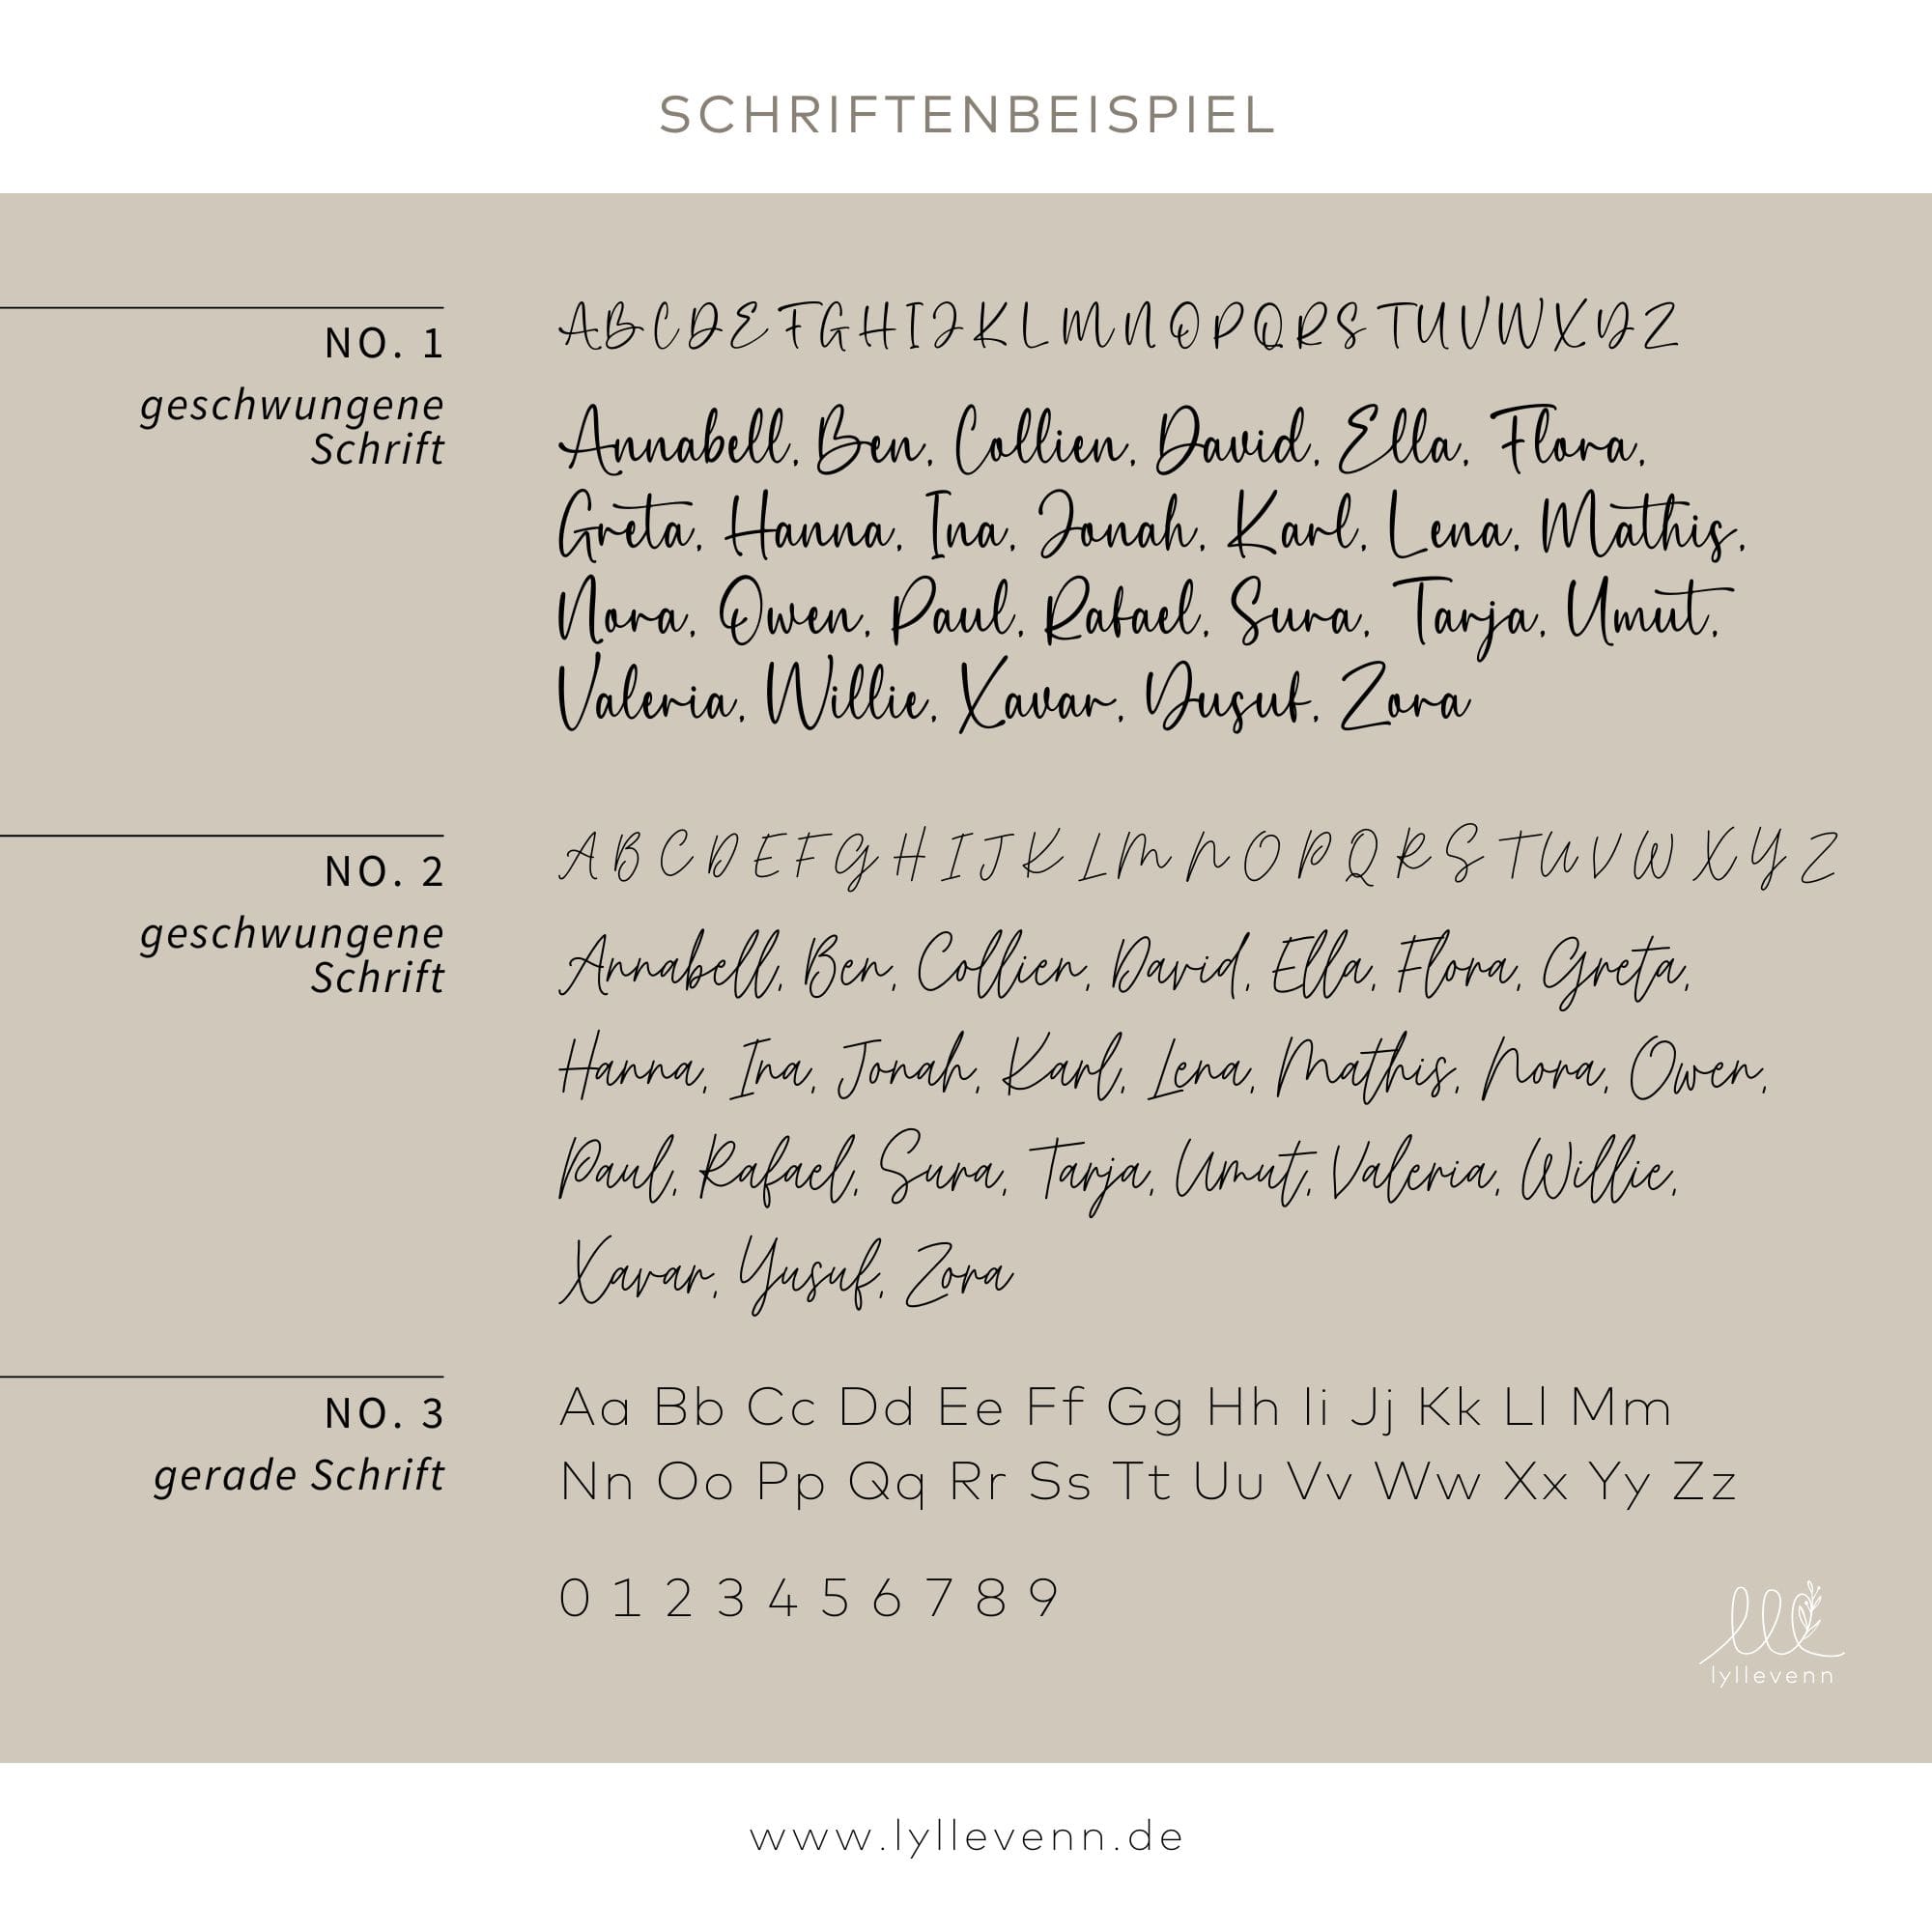 SCHRIFTENBEISPIEL
NO. 1
geschwungene
Schrift
A B C D E F G H I J K L M N O P Q R S T U V W X Y Z
Annabell, Ben, Collien, David, Ella, Flora,
Greta, Hanna, Ina, Jonah, Karl, Lena, Mathis,
Nora, Owen, Paul, Rafael, Sura, Tarja, Umut,
Valeria, Willie, Xavar, Yusuf, Zora
NO. 2
geschwungene
Schrift
A B C D E F G H I J K L M N O P Q R S T U V W X Y Z
Annabell, Ben, Collien, David, Ella, Flora, Greta,
Hanna, Ina, Jonah, Karl, Lena, Mathis, Nora, Owen,
Paul, Rafael, Sura, Tarja, Umut, Valeria, Willie,
Xavar, Yusuf, Zora
NO. 3
gerade Schrift
Aa Bb Cc Dd Ee Ff Gg Hh Ii Jj Kk Ll Mm
Nn Oo Pp Qq Rr Ss Tt Uu Vv Ww Xx Yy Zz
0 1 2 3 4 5 6 7 8 9
lll
lyllevenn
www.lyllevenn.de